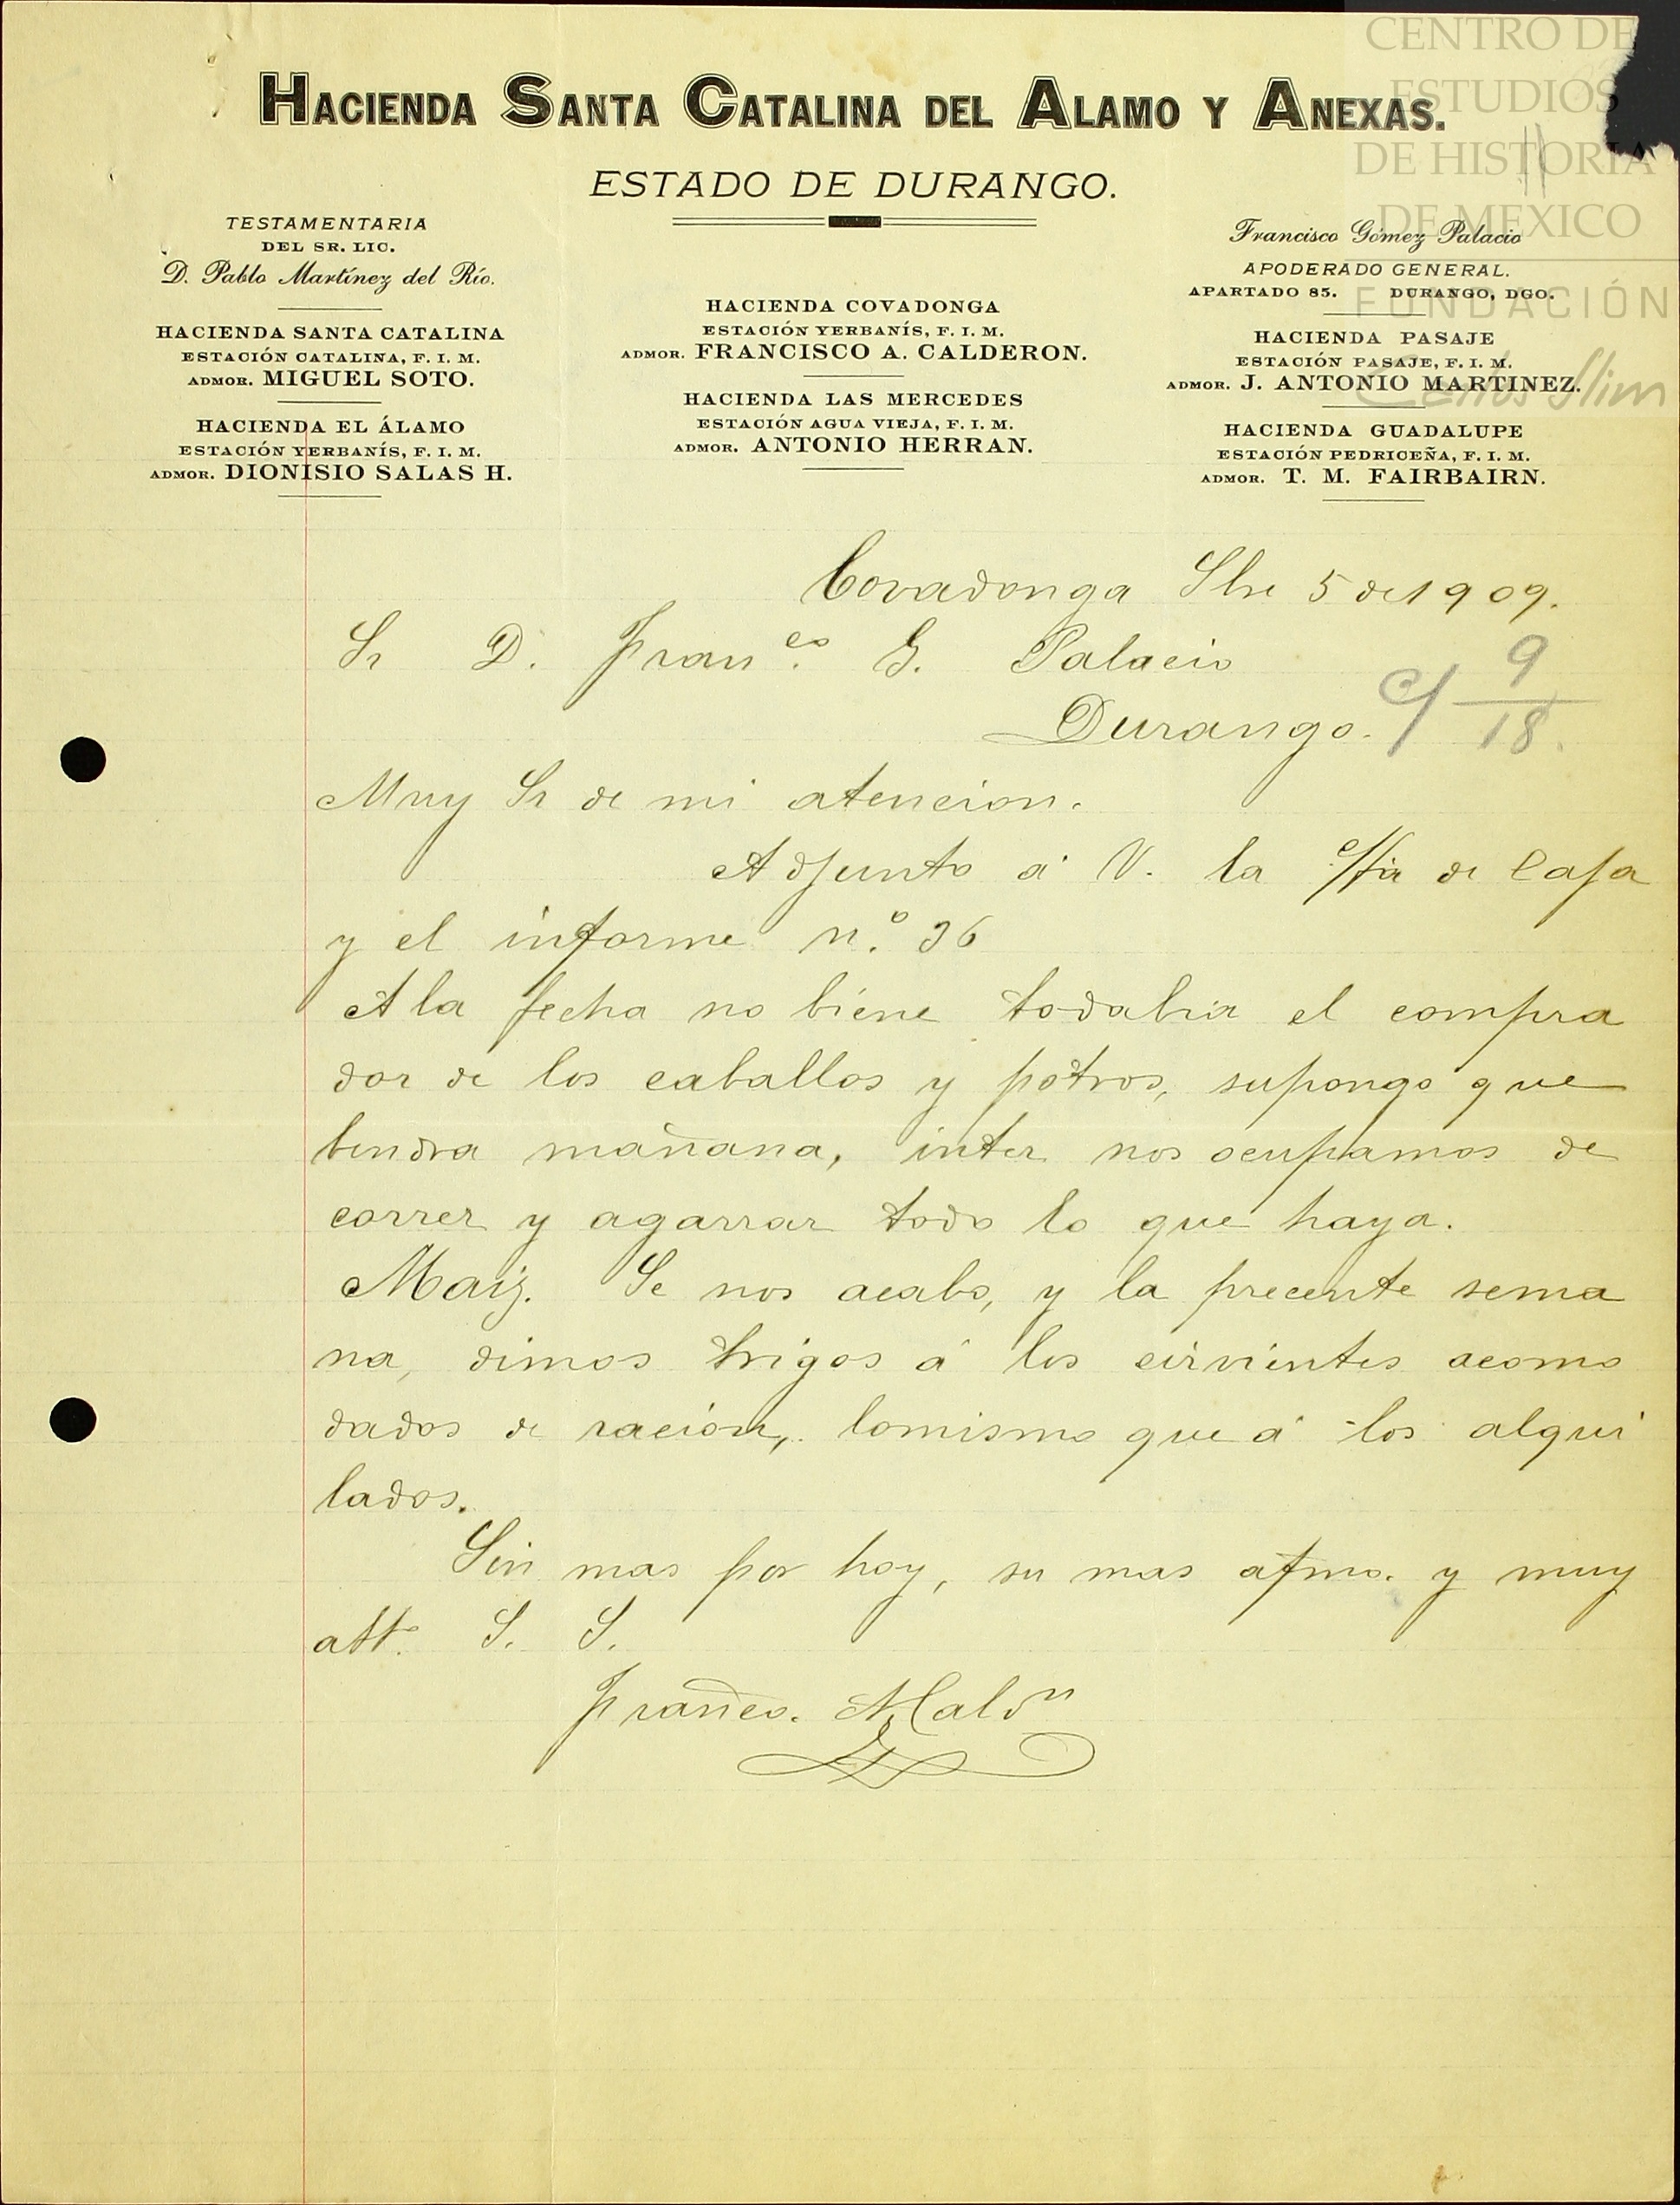 HACIENDA SANTA CATALINA DEL ALAMO Y ANEXAS.
ESTADO DE DURANGO.
TESTAMENTARIA
DEL SR. LIC.
D. Pablo Martínez del Río.
HACIENDA SANTA CATALINA
ESTACIÓN CATALINA, F. I. M.
ADMOR. MIGUEL SOTO.
HACIENDA EL ÁLAMO
ESTACIÓN YERBANÍS, F. I. M.
ADMOR. DIONISIO SALAS H.
HACIENDA COVADONGA
ESTACIÓN YERBANÍS, F. I. M.
ADMOR. FRANCISCO A. CALDERON.
HACIENDA LAS MERCEDES
ESTACIÓN AGUA VIEJA, F. I. M.
ADMOR. ANTONIO HERRAN.
Francisco Gómez Palacio
APODERADO GENERAL.
APARTADO 85. DURANGO, DGO.
HACIENDA PASAJE
ESTACIÓN PASAJE, F. I. M.
ADMOR. J. ANTONIO MARTINEZ.
HACIENDA GUADALUPE
ESTACIÓN PEDRICEÑA, F. I. M.
ADMOR. T. M. FAIRBAIRN.
CENTRO DE
ESTUDIOS
DE HISTORIA
DE MEXICO
FUNDACIÓN
Carlos Slim
Covadonga Sbre 5 de 1909.
Sr D. Franco. G. Palacio
Durango.
c/ 9/18.
Muy Sr de mi atencion.
Adjunto á V. la de Caja
y el informe n.º 36
A la fecha no biene todabia el compra
dor de los caballos y potros, supongo que
bendra mañana, inter nos ocupamos de
correr y agarrar todo lo que haya.
Maiz. Se nos acabo, y la precente sema
na, dimos trigos á los cirvientes acomo
dados de ración, lomismo que á los alqui
lados.
Sin mas por hoy, su mas afmo. y muy
att. S. S.
Franco.